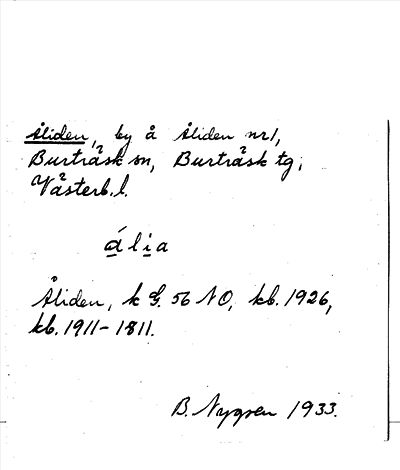 Åliden, by å Åliden nr 1,
Burträsk sn, Burträsk tg,
Västerb. l.
ália
Åliden, k G. 56 NO, kb. 1926,
kb. 1911-1811.
B. Nygren 1933.